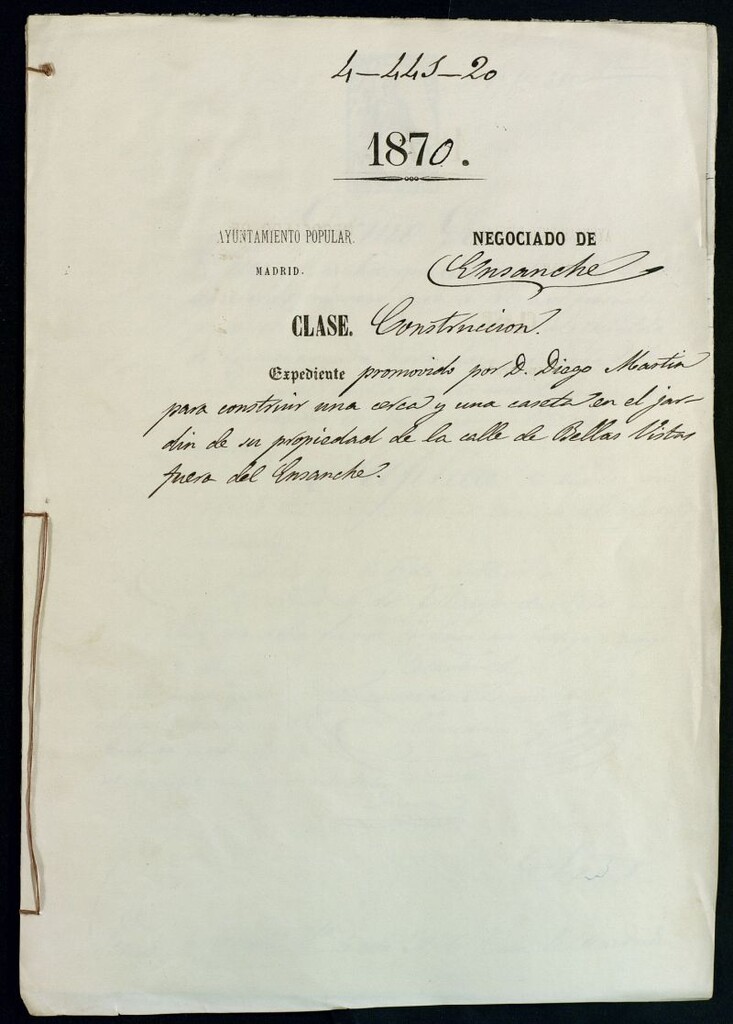 4-445-20
1870.
AYUNTAMIENTO POPULAR.
MADRID.
NEGOCIADO DE
Ensanche
CLASE. Construccion.
Expediente promovido por D. Diego Martin
para construir una cerca y una caseta en el jar-
din de su propiedad de la calle de Bellas Vistas
fuera del Ensanche.